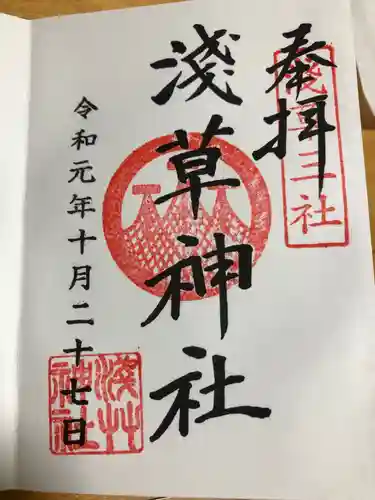 奉拝
淺草三社
淺草神社
令和元年十月二十七日
淺草神社